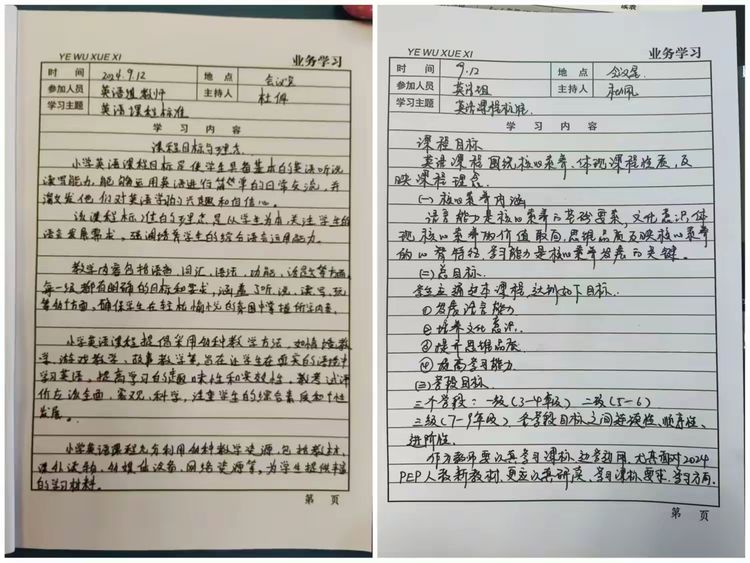 YE WU XUE XI
业务学习
时 间
2024.9.12
地 点
会议室
参加人员
英语组教师
主持人
杜佩
学习主题
英语课程标准
学 习 内 容
课程目标与理念
小学英语课程目标是使学生具备基本的英语听说
读写能力,能够运用英语进行简单的日常交流,并
激发他们对英语学习的兴趣和自信心。
该课程标准的理念是以学生为本,关注学生的
语言发展需求,强调培养学生的综合语言运用能力。
教学内容包括语音、词汇、语法、功能、话题等方面,
每一级都有明确的目标和要求,涵盖了听说、读写、玩
等方面,确保学生在轻松愉悦的氛围中掌握所学内容。
小学英语课程提倡采用多种教学方法,如情境教
学、游戏教学、故事教学等,旨在让学生在真实的语境中
学习英语,提高学习的趣味性和实效性,教考试评
价应该全面、客观、科学,注重学生的综合素质和个性
发展。
小学英语课程充分利用多种教学资源,包括教材、
课外读物、多媒体设备、网络资源等,为学生提供丰富
的学习材料。
第 页
YE WU XUE XI
业务学习
时 间
9.12
地 点
会议室
参加人员
英语组
主持人
学习主题
英语课程标准
学 习 内 容
课程目标
英语课程围绕核心素养,体现课程性质,反
映课程理念
(一)核心素养内涵
语言能力是核心素养的基础要素,文化意识体
现核心素养的价值取向,思维品质反映核心素养
的心智特征,学习能力是核心素养发展的关键。
(二)总目标
学生应通过本课程,达到如下目标.
①发展语言能力
②培养文化意识.
③提升思维品质
④提高学习能力
(三)学段目标
三个学段:一级(3-4年级) 二级(5-6)
三级(7-9年级) 各学段目标之间连续性、顺序性、
进阶性.
作为教师要认真学习课标,边学边用,尤其面对2024
PEP人教新教材,更应认真研读、学习课标要求,学习方向.
第 页